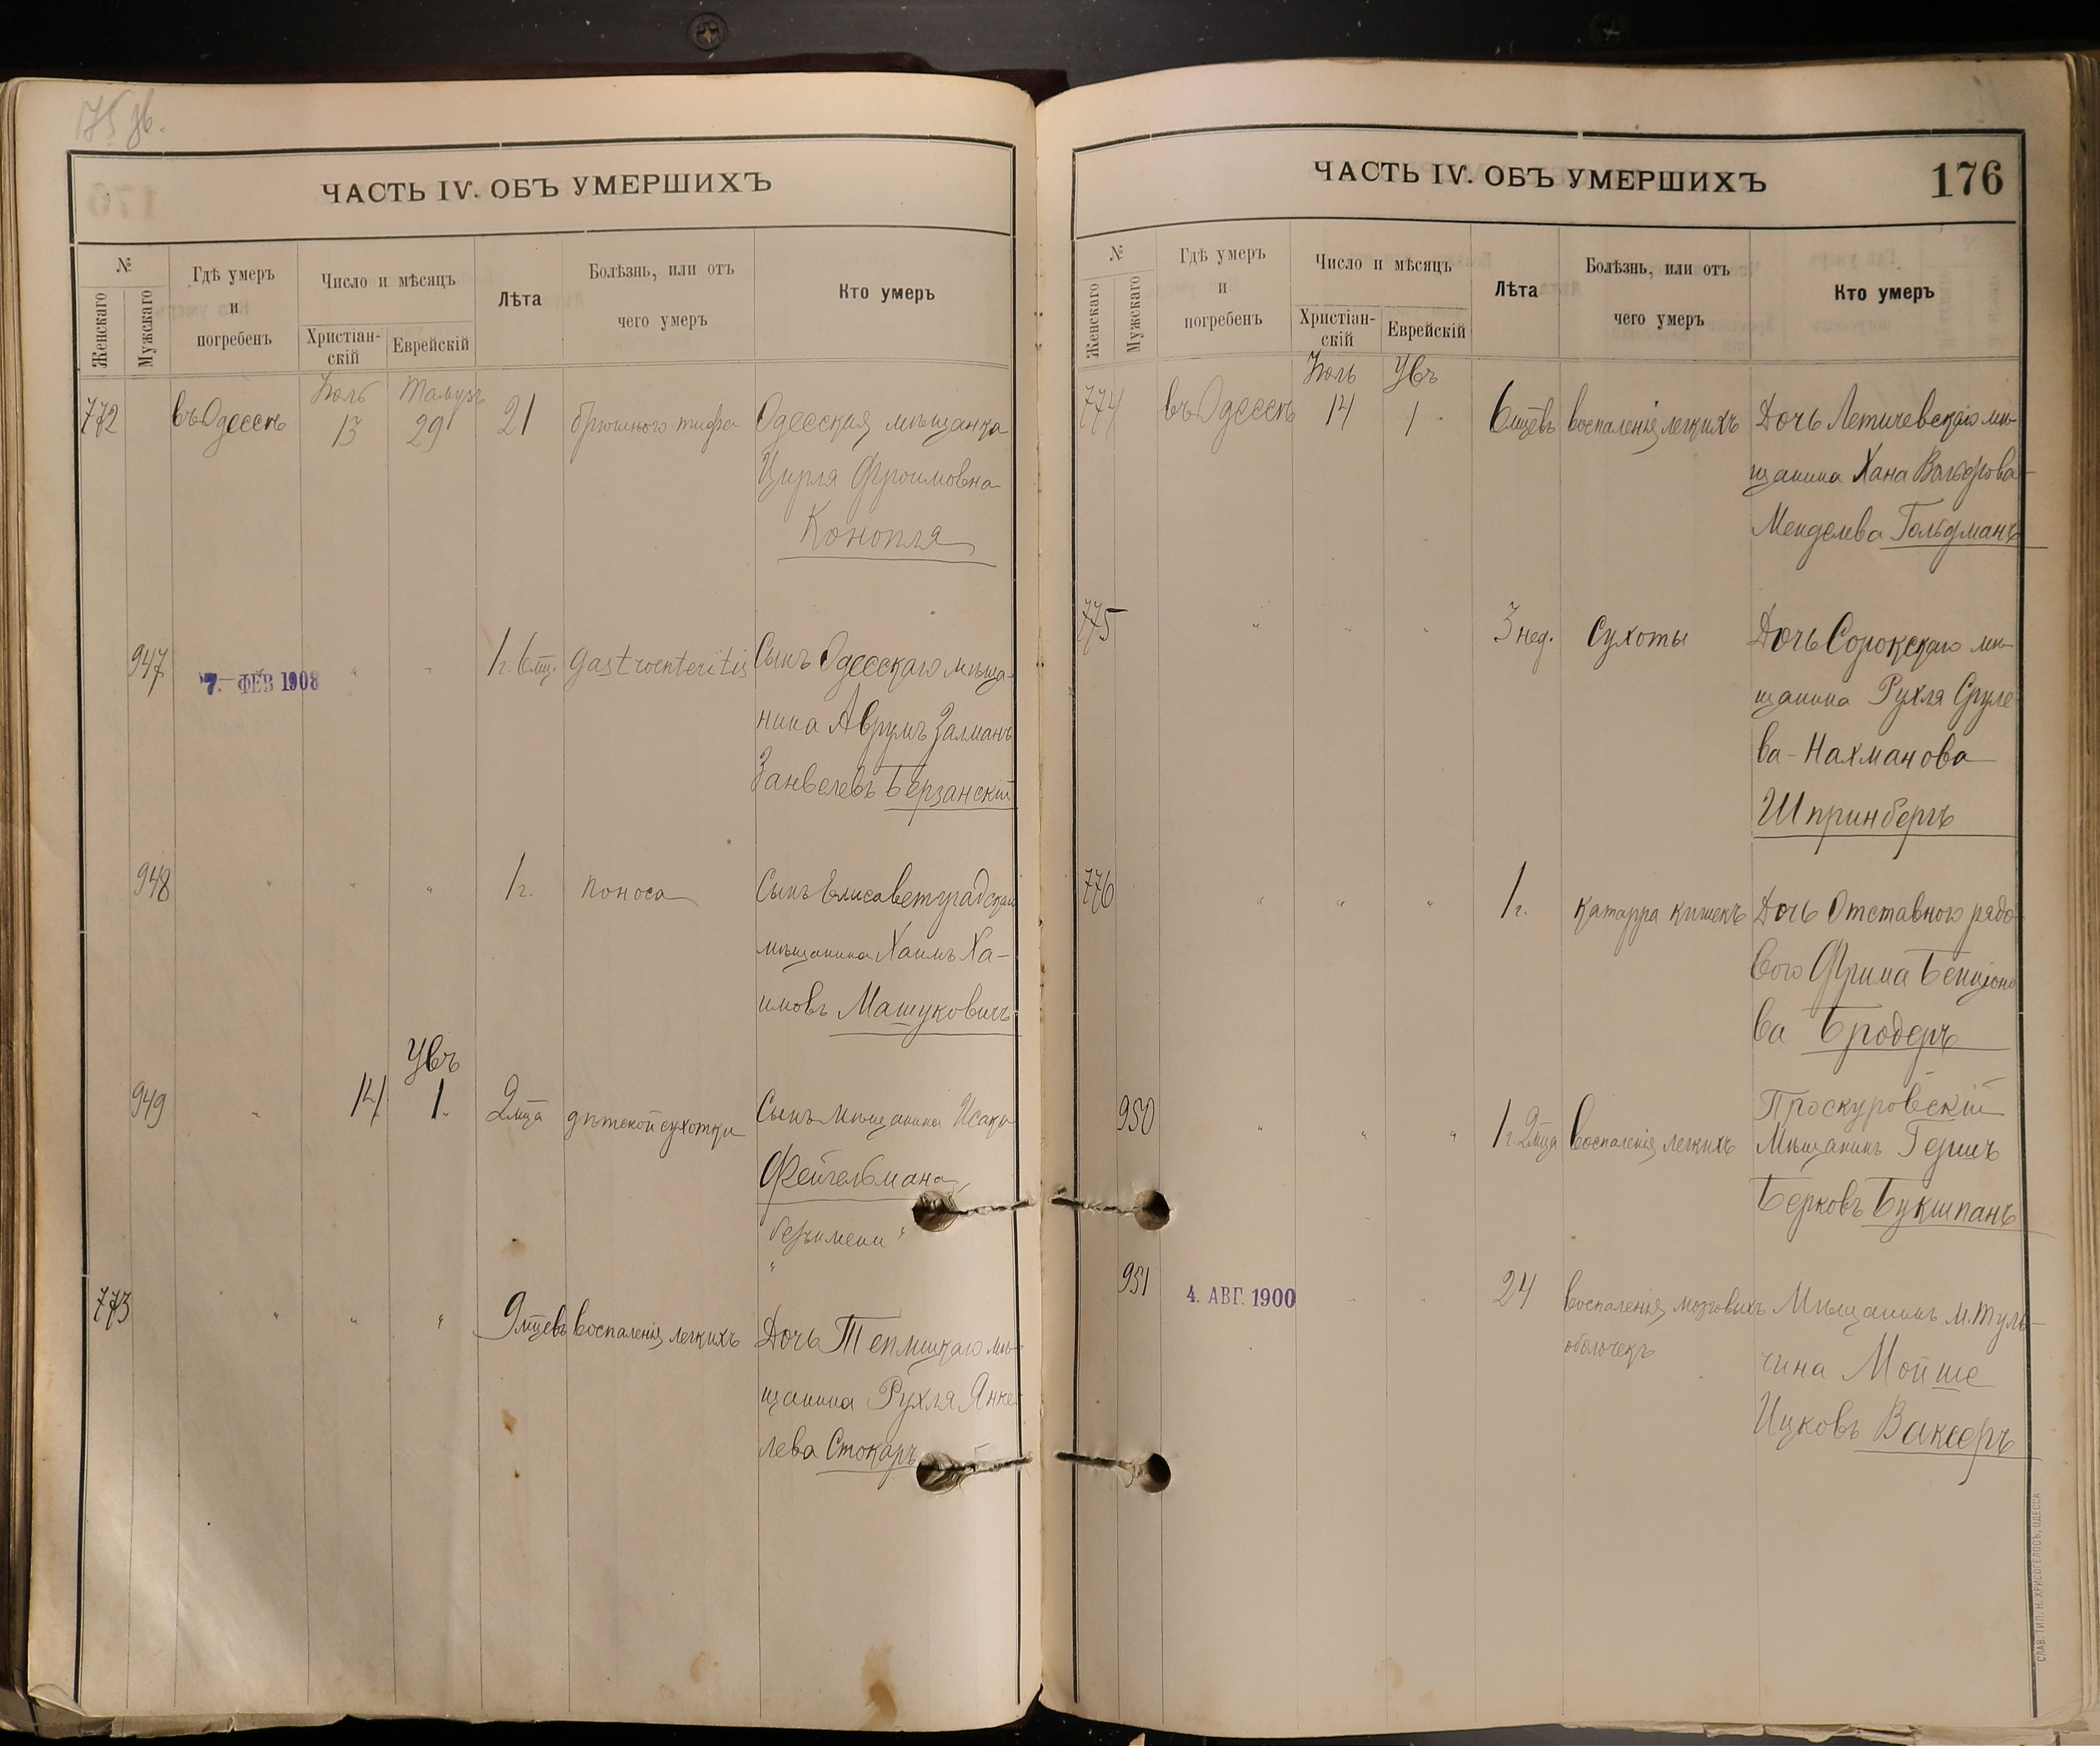 175 об.
ЧАСТЬ IV. ОБЪ УМЕРШИХЪ
№
Женскаго
Мужскаго
Гдѣ умеръ
и
погребенъ
Число и мѣсяцъ
Христіан-
скій
Еврейскій
Лѣта
Болѣзнь, или отъ
чего умеръ
Кто умеръ
Іюль Тамузъ
772 въ Одессѣ 13 29 21 брюшного тифа Одесская мѣщанка
Цирля Фроимовна
Конопля
947 " " 1г. 6мц. gastroenteritis Сынъ Одесскаго мѣща-
7. ФЕВ 1908
нина Аврумъ Залманъ
Занвелевъ Берзанскій
948 " " " 1г. поноса Сынъ Елисаветградскаго
мѣщанина Хаимъ Ха-
имовъ Машуковичъ
Увъ
949 " 14 1. 2мца дѣтской сухотки Сынъ мѣщанина Исака
Фейгельмана
"безъимени"
773 " " " 9мцевъ воспаленія легкихъ Дочь Теплицкаго мѣ-
щанина Рухля Янке-
лева Стокаръ
ЧАСТЬ IV. ОБЪ УМЕРШИХЪ
176
№
Женскаго
Мужскаго
Гдѣ умеръ
и
погребенъ
Число и мѣсяцъ
Христіан-
скій
Еврейскій
Лѣта
Болѣзнь, или отъ
чего умеръ
Кто умеръ
Іюль Увъ
774 въ Одессѣ 14 1 6мцевъ воспаленія легкихъ Дочь Летичевскаго мѣ-
щанина Хана Вольфова-
Менделева Гольдманъ
775 " " " 3 нед. Сухоты Дочь Сорокскаго мѣ-
щанина Рухля Сруле-
ва-Нахманова
Шпринбергъ
776 " " " 1г. катарра кишекъ Дочь Отставного рядо-
вого Фрима Бенціоно-
ва Бродеръ
950 " " " 1г. 2мца воспаленія легкихъ Проскуровскій
Мѣщанинъ Гершъ
Берковъ Букшпанъ
951 4. АВГ. 1900 " " 24 воспаленія мозговихъ Мѣщанинъ м. Туль-
оболочекъ
чина Мойше
Ицковъ Вaксеръ
СЛАВ. ТИП. Н. ХРИСОГЕЛОСЪ, ОДЕССА